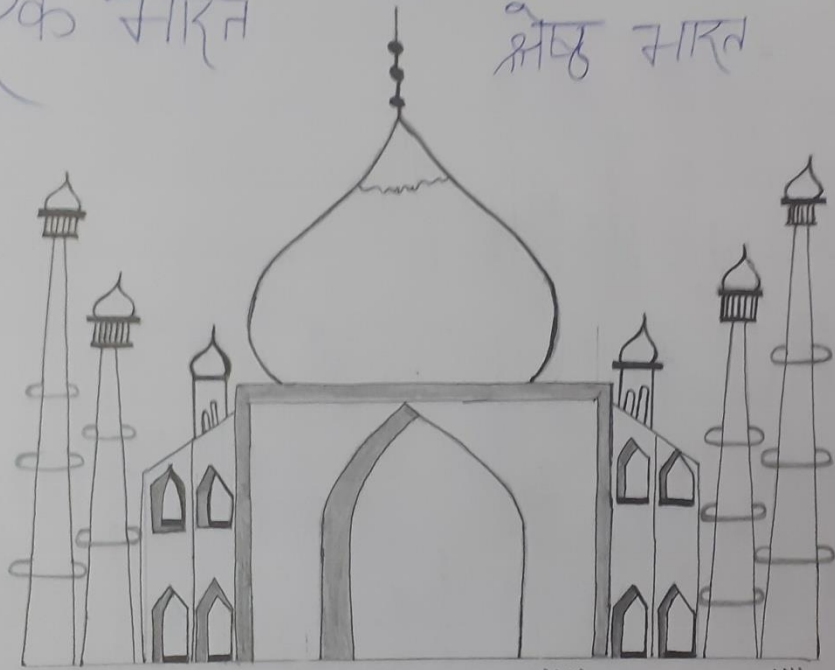 एक भारत
श्रेष्ठ भारत